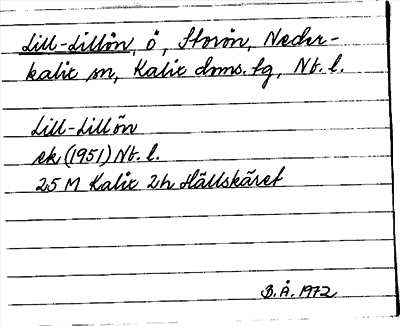 Lill-Lillön, ö, Storön, Neder-
kalix sn, Kalix doms. tg, Nb. l.
Lill-Lillön
ek (1951) Nb. l.
25 M Kalix 2h Hällskäret
B.Å. 1972